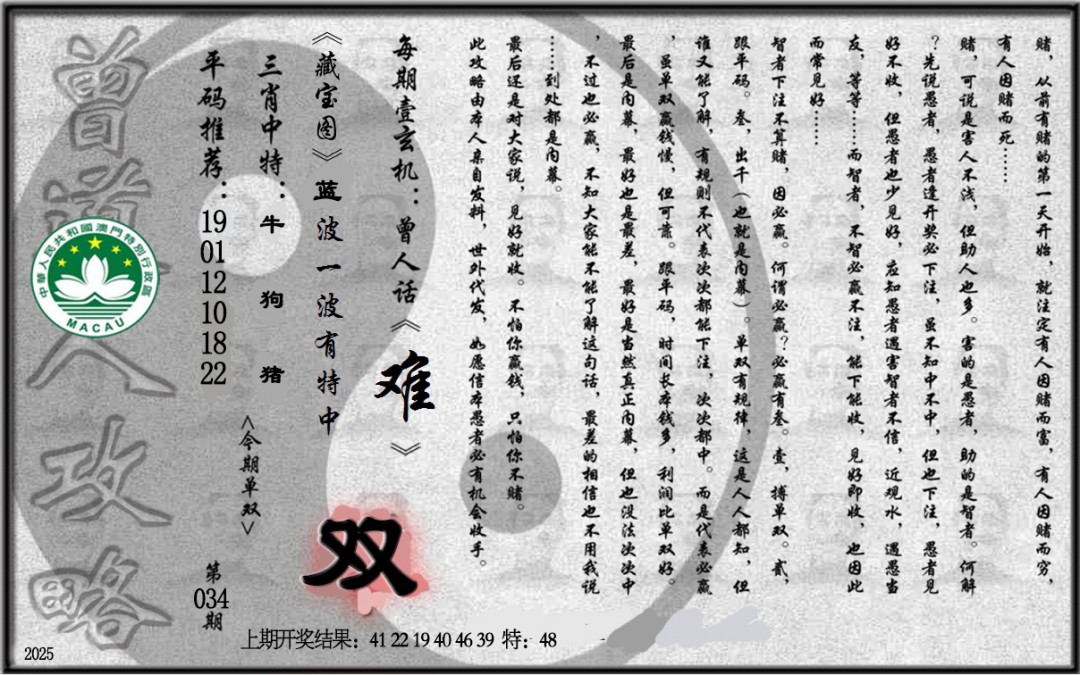 赌，从前有赌的第一天开始，就注定有人因赌而富，有人因赌而穷，
有人因赌而死……
赌，可说是害人不浅，但助人也多。害的是愚者，助的是智者。何解
？先说愚者，愚者逢开奖必下注，虽不知中不中，但也下注，愚者见
好不收，但愚者也少见好，应知愚者遇害智者不信，近观水，遇愚当
友，等等……而智者，不智必赢不注，能下能收，见好即收，也因此
而常见好……
智者下注不算赌，因必赢。何谓必赢？必赢有叁。壹，搏单双。贰，
跟平码。叁，出千（也就是内幕）。单双有规律，这是人人都知，但
谁又能了解，有规则不代表次次都能下注，次次都中。而是代表必赢
，虽单双赢钱慢，但可靠。跟平码，时间长本钱多，利润比单双好。
最后是内幕，最好也是最差，最好是当然真正内幕，但也没法次次中
，不过也必赢，不知大家能不能了解这句话，最差的相信也不用我说
……到处都是内幕。
最后还是对大家说，见好就收。不怕你赢钱，只怕你不赌。
此攻略由本人亲自发料，世外代发，如愿信本愚者必有机会收手。
每期壹玄机：曾人话《难》
《藏宝图》蓝波一波有特中
双
三肖中特：牛 狗 猪
<今期单双>
平码推荐：19 01 12 10 18 22
第034期
曾道人攻略
中華人民共和國澳門特別行政區
MACAU
上期开奖结果：41 22 19 40 46 39 特：48
2025